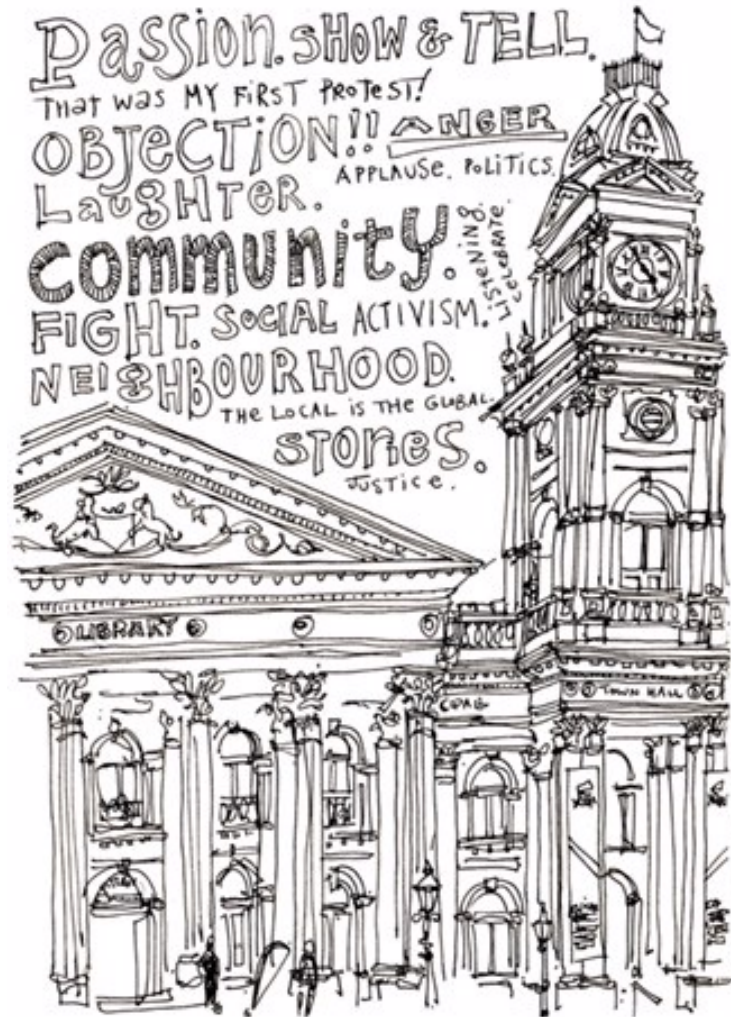 PASSION. SHOW & TELL.
THAT WAS MY FIRST PROTEST!
OBJECTION!! ANGER
APPLAUSE. POLITICS.
LAUGHTER.
COMMUNITY.
LISTENING.
CELEBRATE.
FIGHT. SOCIAL ACTIVISM.
NEIGHBOURHOOD.
THE LOCAL IS THE GLOBAL.
STORIES.
JUSTICE.
LIBRARY
TOWN HALL